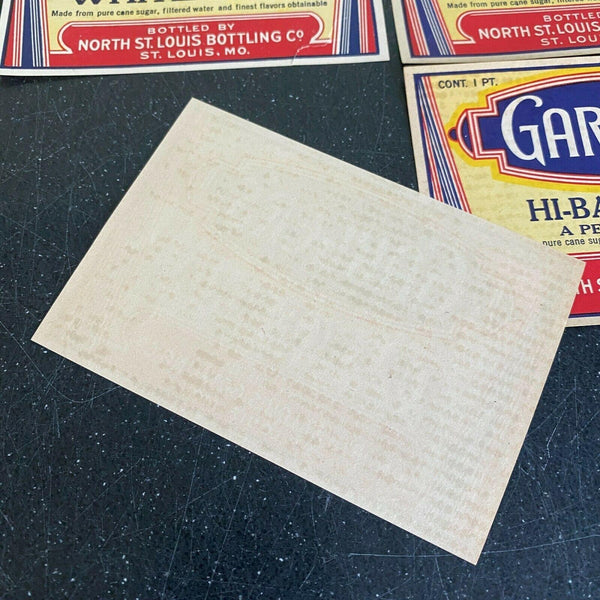 Made from pure cane sugar, filtered water and finest flavors obtainable
BOTTLED BY
NORTH ST. LOUIS BOTTLING CO
ST. LOUIS, MO.
Made from pure cane sugar, filtered
BOTTLED
NORTH ST. LOUIS
ST. LOUIS
CONT. 1 PT.
GAR
HI-BA
A PE
pure cane